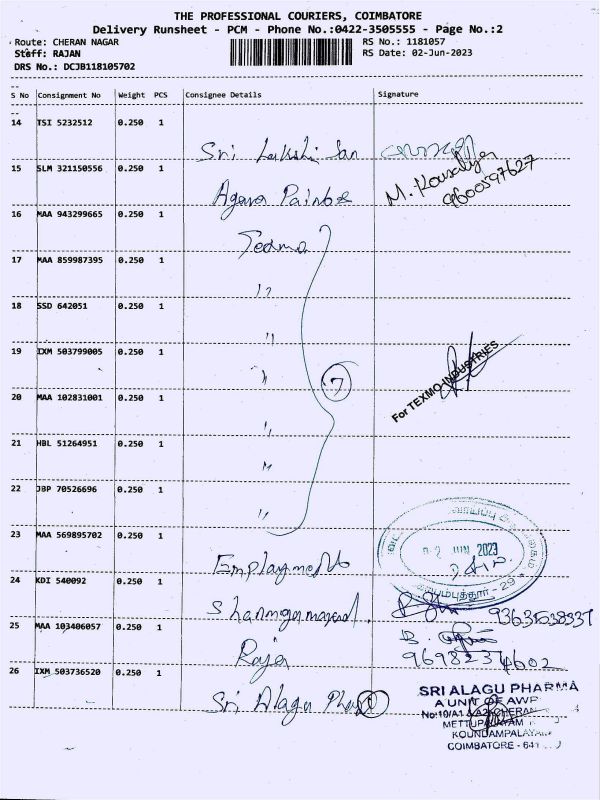 THE PROFESSIONAL COURIERS, COIMBATORE
Delivery Runsheet - PCM - Phone No.:0422-3505555 - Page No.:2
Route: CHERAN NAGAR RS No.: 1181057
Staff: RAJAN RS Date: 02-Jun-2023
DRS No.: DCJB118105702
S No Consignment No Weight PCS Consignee Details Signature
14 TSI 5232512 0.250 1 Sri Lakshi
15 SLM 321150556 0.250 1 Agarva Paints M. Kousalya
9600597627
16 MAA 943299665 0.250 1 Texmo
17 MAA 859987395 0.250 1 ,,
18 SSD 642051 0.250 1 ,,
19 IXM 503799005 0.250 1 ,, 7 For TEXMO INDUSTRIES
20 MAA 102831001 0.250 1 ,,
21 HBL 51264951 0.250 1 ,,
22 JBP 70526696 0.250 1 ,,
23 MAA 569895702 0.250 1 Employment 2 JUN 2023
24 KDI 540092 0.250 1
25 MAA 103406057 0.250 1 Raja 9698234602
26 IXM 503736520 0.250 1 Sri Alagu Phar
SRI ALAGU PHARMA
A UNIT OF AWP
No:10/A1 & A2 CHERAN
METTUPALAYAM
KOUNDAMPALAYAM
COIMBATORE - 641